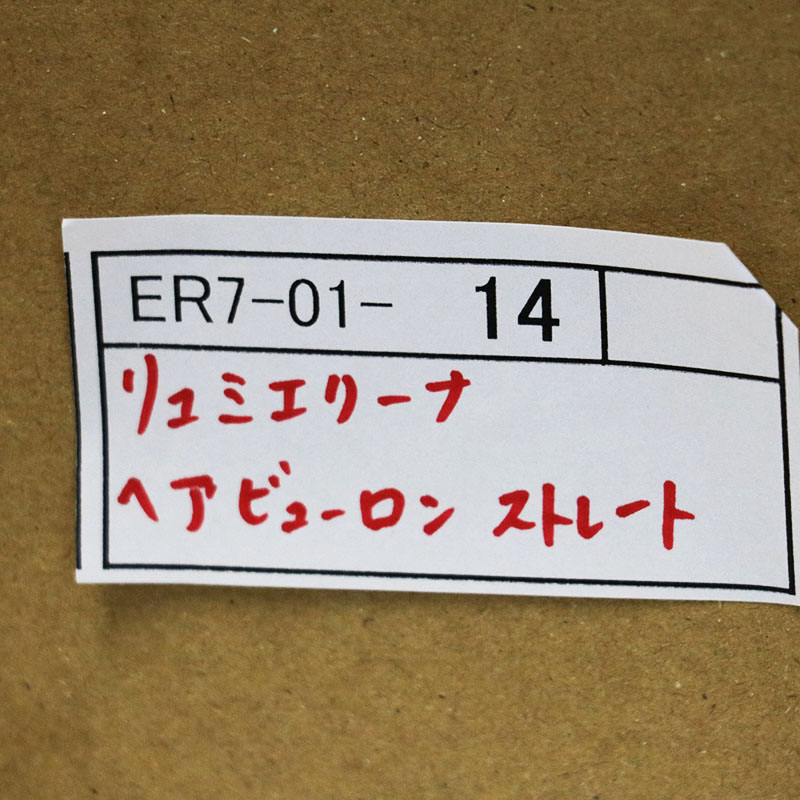 ER7-01- 14
リュミエリーナ
ヘアビューロン ストレート